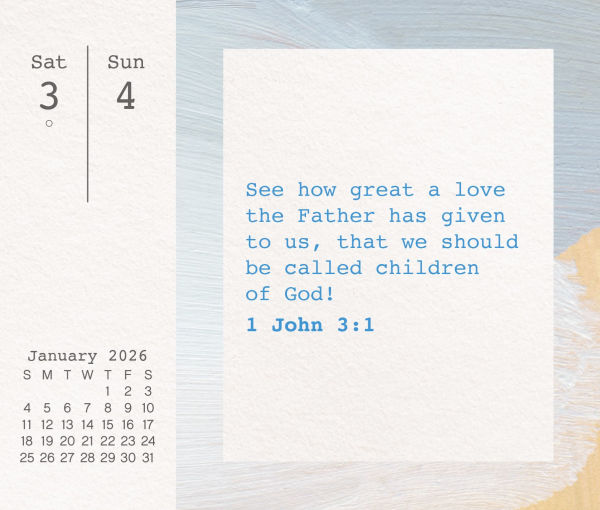 Sat Sun
3 4
See how great a love
the Father has given
to us, that we should
be called children
of God!
1 John 3:1
January 2026
S M T W T F S
1 2 3
4 5 6 7 8 9 10
11 12 13 14 15 16 17
18 19 20 21 22 23 24
25 26 27 28 29 30 31